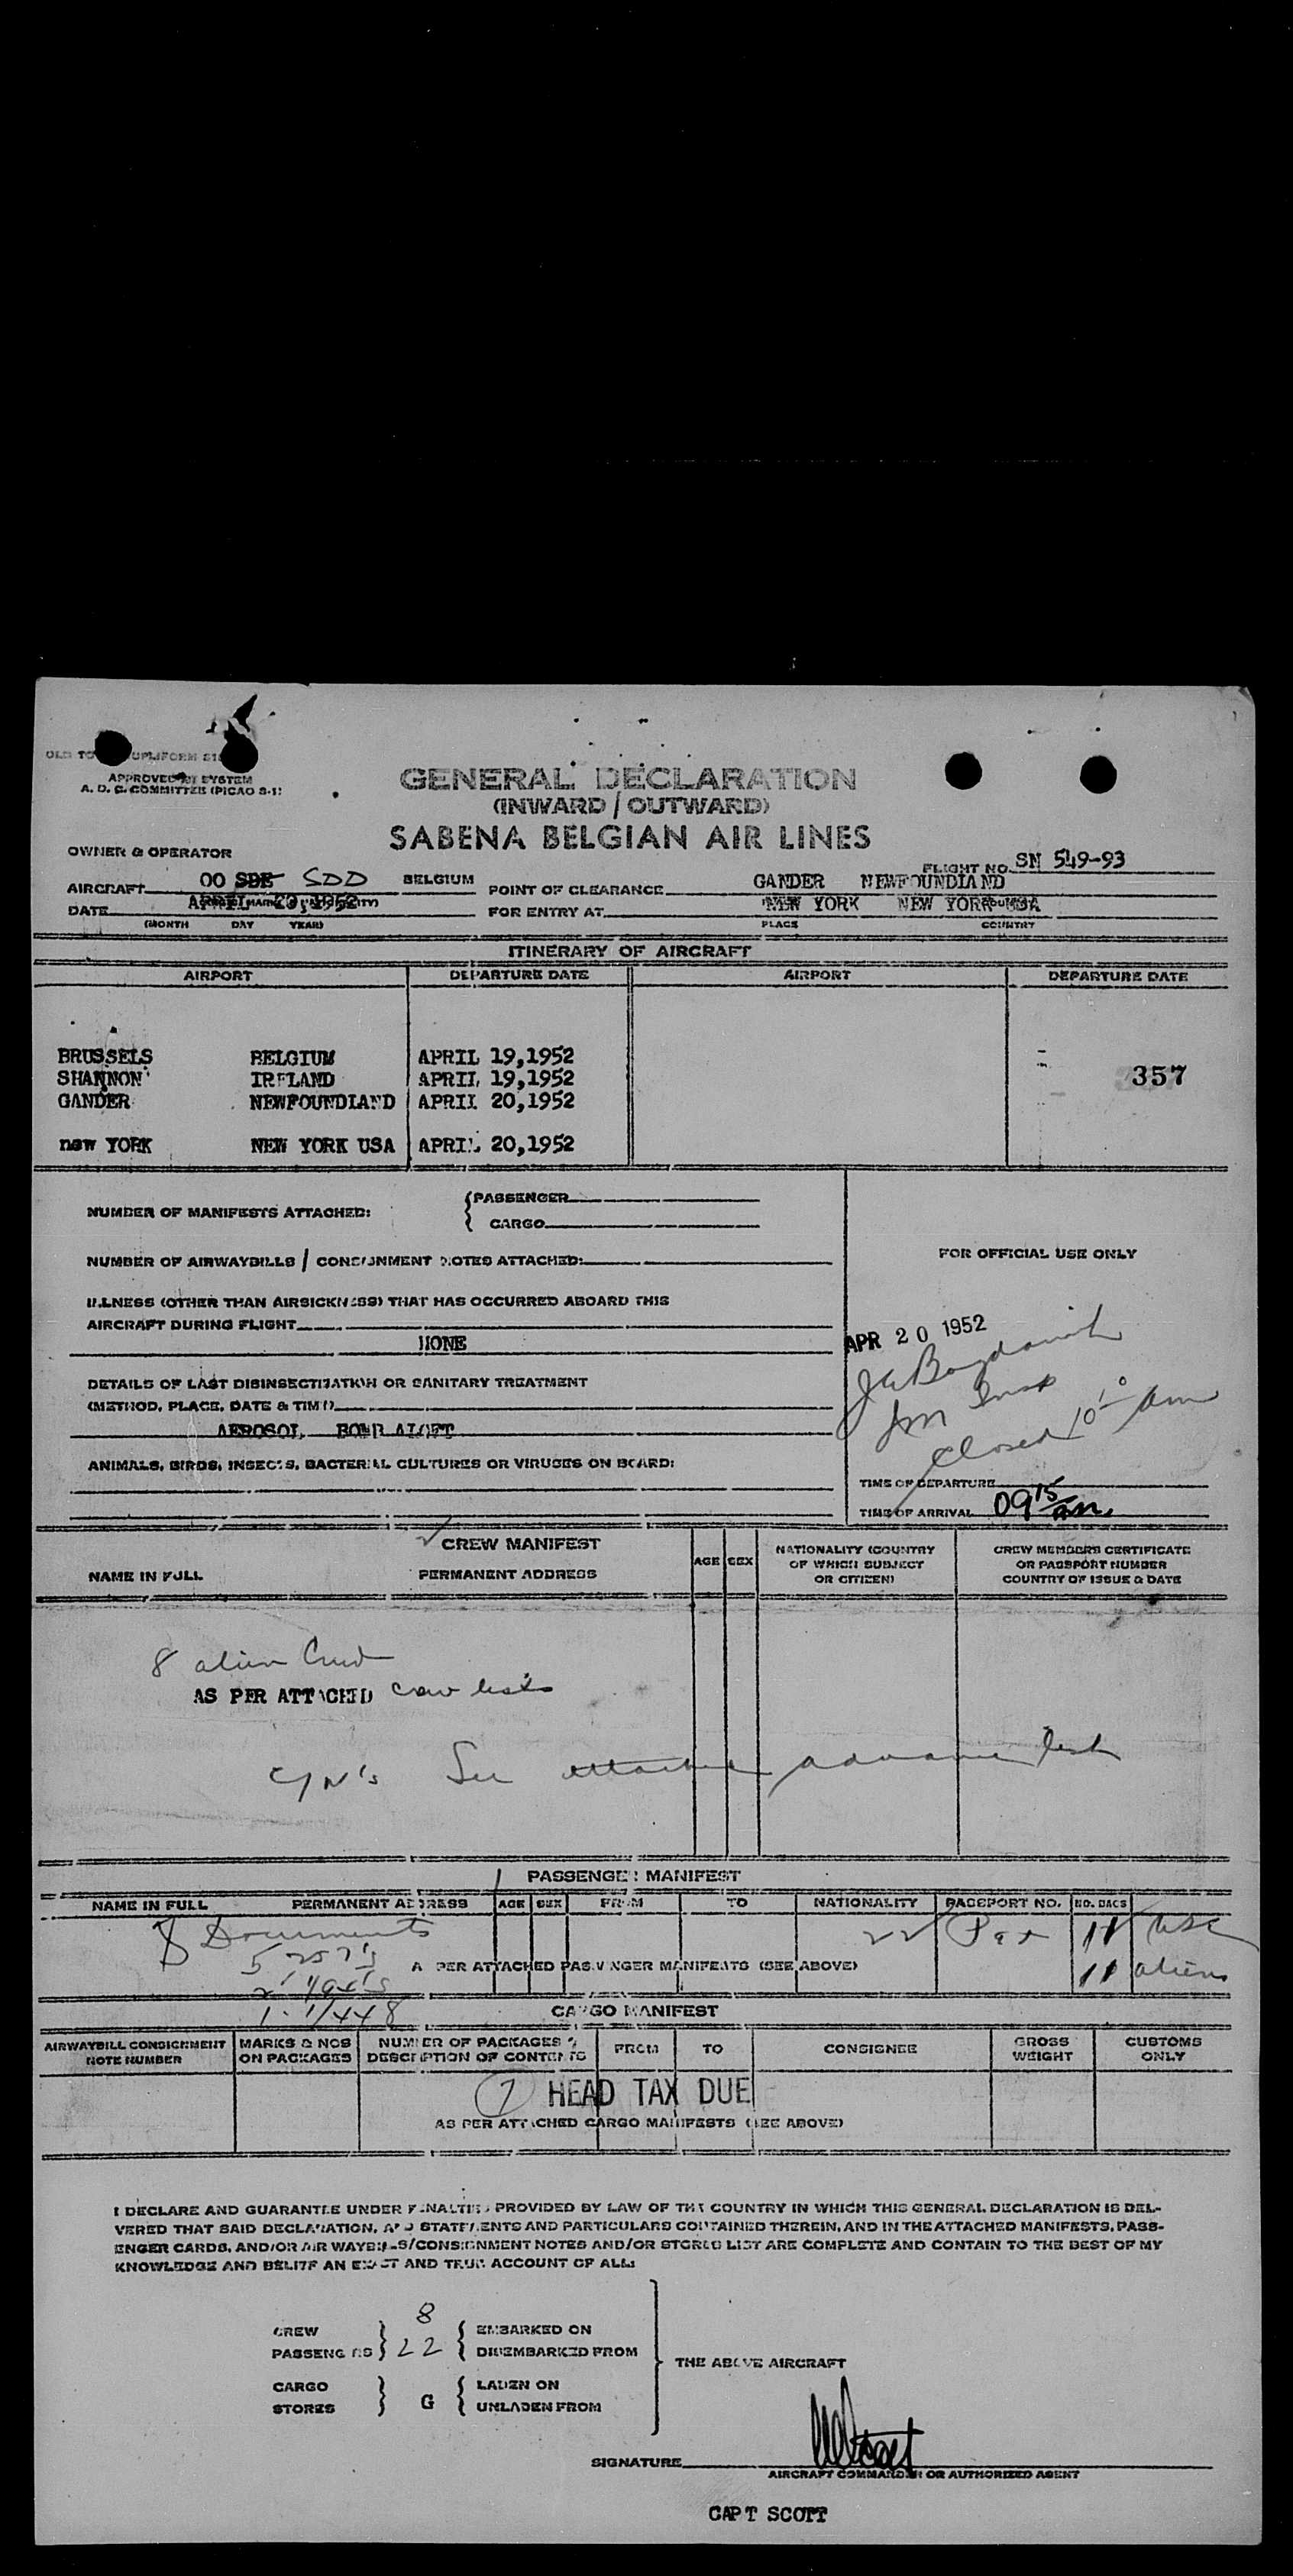 APPROVED BY SYSTEM
A. D. C. COMMITTEE (PICAO S-1)
GENERAL DECLARATION
(INWARD / OUTWARD)
SABENA BELGIAN AIR LINES
OWNER & OPERATOR
FLIGHT NO. SN 549-93
AIRCRAFT OO SDE SDD BELGIUM
POINT OF CLEARANCE GANDER NEWFOUNDLAND
DATE APRIL 20, 1952
FOR ENTRY AT NEW YORK NEW YORK USA
(MONTH DAY YEAR)
PLACE COUNTRY
ITINERARY OF AIRCRAFT
AIRPORT DEPARTURE DATE AIRPORT DEPARTURE DATE
BRUSSELS BELGIUM APRIL 19,1952
SHANNON IRELAND APRIL 19,1952
357
GANDER NEWFOUNDLAND APRIL 20,1952
new YORK NEW YORK USA APRIL 20,1952
NUMBER OF MANIFESTS ATTACHED: { PASSENGER
CARGO
NUMBER OF AIRWAYBILLS / CONSIGNMENT NOTES ATTACHED:
FOR OFFICIAL USE ONLY
ILLNESS (OTHER THAN AIRSICKNESS) THAT HAS OCCURRED ABOARD THIS
AIRCRAFT DURING FLIGHT
NONE
APR 20 1952
DETAILS OF LAST DISINSECTIZATION OR SANITARY TREATMENT
(METHOD, PLACE, DATE & TIME)
AEROSOL BOMB ALOFT
Closed 10 10 am
ANIMALS, BIRDS, INSECTS, BACTERIAL CULTURES OR VIRUSES ON BOARD:
TIME OF DEPARTURE
TIME OF ARRIVAL 09 15 am.
CREW MANIFEST
NAME IN FULL PERMANENT ADDRESS AGE SEX NATIONALITY (COUNTRY OF WHICH SUBJECT OR CITIZEN) CREW MEMBERS CERTIFICATE OR PASSPORT NUMBER COUNTRY OF ISSUE & DATE
8 alien Crew
AS PER ATTACHED crew lists
See attached advance list
PASSENGER MANIFEST
NAME IN FULL PERMANENT ADDRESS AGE SEX FROM TO NATIONALITY PASSPORT NO. NO. BAGS
8 Documents 22 Pax 11 USC
5 257's
AS PER ATTACHED PASSENGER MANIFESTS (SEE ABOVE) 11 aliens
CARGO MANIFEST
AIRWAYBILL CONSIGNMENT NOTE NUMBER MARKS & NOS ON PACKAGES NUMBER OF PACKAGES & DESCRIPTION OF CONTENTS FROM TO CONSIGNEE GROSS WEIGHT CUSTOMS ONLY
7 HEAD TAX DUE
AS PER ATTACHED CARGO MANIFESTS (SEE ABOVE)
I DECLARE AND GUARANTEE UNDER PENALTIES PROVIDED BY LAW OF THE COUNTRY IN WHICH THIS GENERAL DECLARATION IS DEL-
VERED THAT SAID DECLARATION, AND STATEMENTS AND PARTICULARS CONTAINED THEREIN, AND IN THE ATTACHED MANIFESTS, PASS-
ENGER CARDS, AND/OR AIR WAYBILLS/CONSIGNMENT NOTES AND/OR STORES LIST ARE COMPLETE AND CONTAIN TO THE BEST OF MY
KNOWLEDGE AND BELIEF AN EXACT AND TRUE ACCOUNT OF ALL:
CREW 8 EMBARKED ON
PASSENGERS 22 DISEMBARKED FROM
THE ABOVE AIRCRAFT
CARGO LADEN ON
STORES G UNLADEN FROM
SIGNATURE
AIRCRAFT COMMANDER OR AUTHORIZED AGENT
CAPT SCOTT